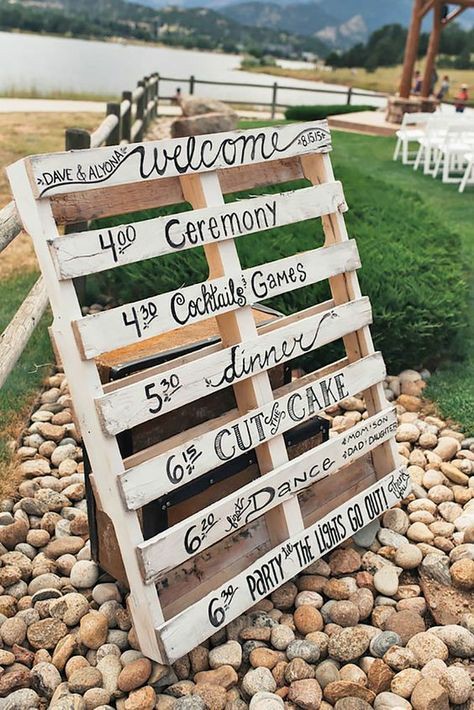 DAVE & ALYONA welcome 8.15.15
4:00 CEREMONY
4:30 COCKTAILS & GAMES
5:30 dinner
6:15 CUT the CAKE
6:20 first DANCE MOM & SON DAD & DAUGHTER
6:30 PARTY 'til THE LIGHTS GO OUT! Thank You